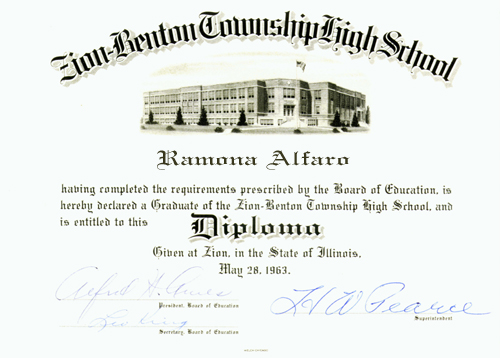 Zion-Benton Township High School
Ramona Alfaro
having completed the requirements prescribed by the Board of Education, is
hereby declared a Graduate of the Zion-Benton Township High School, and
is entitled to this Diploma
Given at Zion, in the State of Illinois,
May 28, 1963.
Alfred H.
President, Board of Education
H W Pearce
Superintendent
Secretary, Board of Education